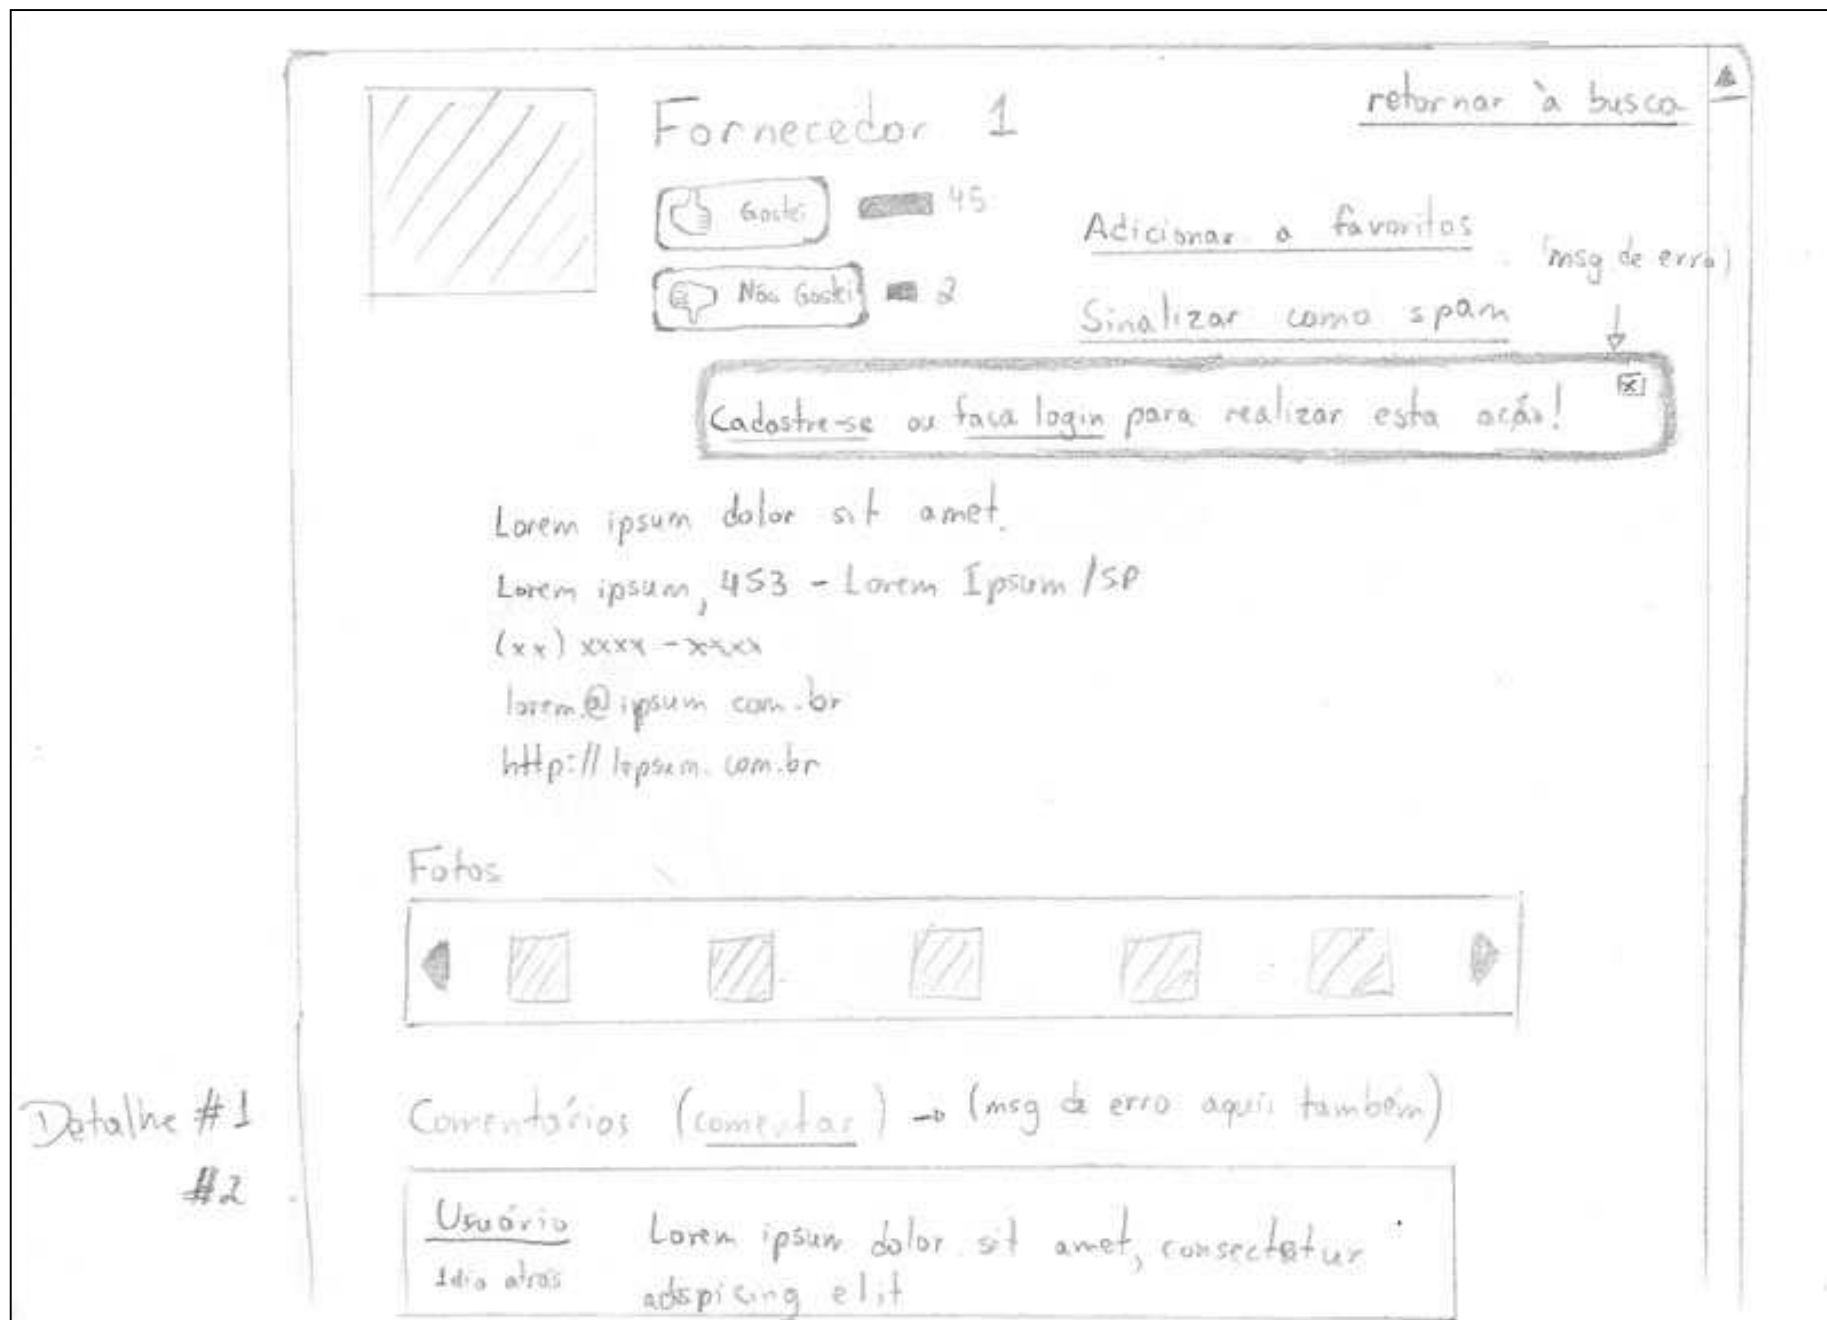 Fornecedor 1
retornar à busca
Gostei 45
Adicionar a favoritos
(msg de erro)
Não Gostei 2
Sinalizar como spam
x
Cadastre-se ou faça login para realizar esta ação!
Lorem ipsum dolor sit amet.
Lorem ipsum, 453 - Lorem Ipsum /SP
(xx) xxxx-xxxx
lorem@ipsum.com.br
http://lipsum.com.br
Fotos
Detalhe #1
Comentários (comentar) → (msg de erro aqui também)
#2
Usuário
1 dia atrás
Lorem ipsum dolor sit amet, consectetur
adspicing elit